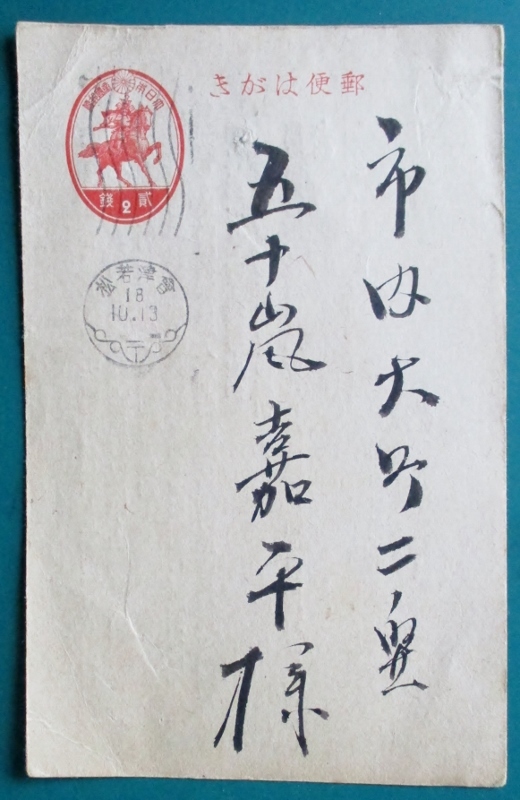 郵便はがき
大日本帝國郵便
貳 2 錢
會津若松
18
10.13
市内大町二ノ
五十嵐嘉平様